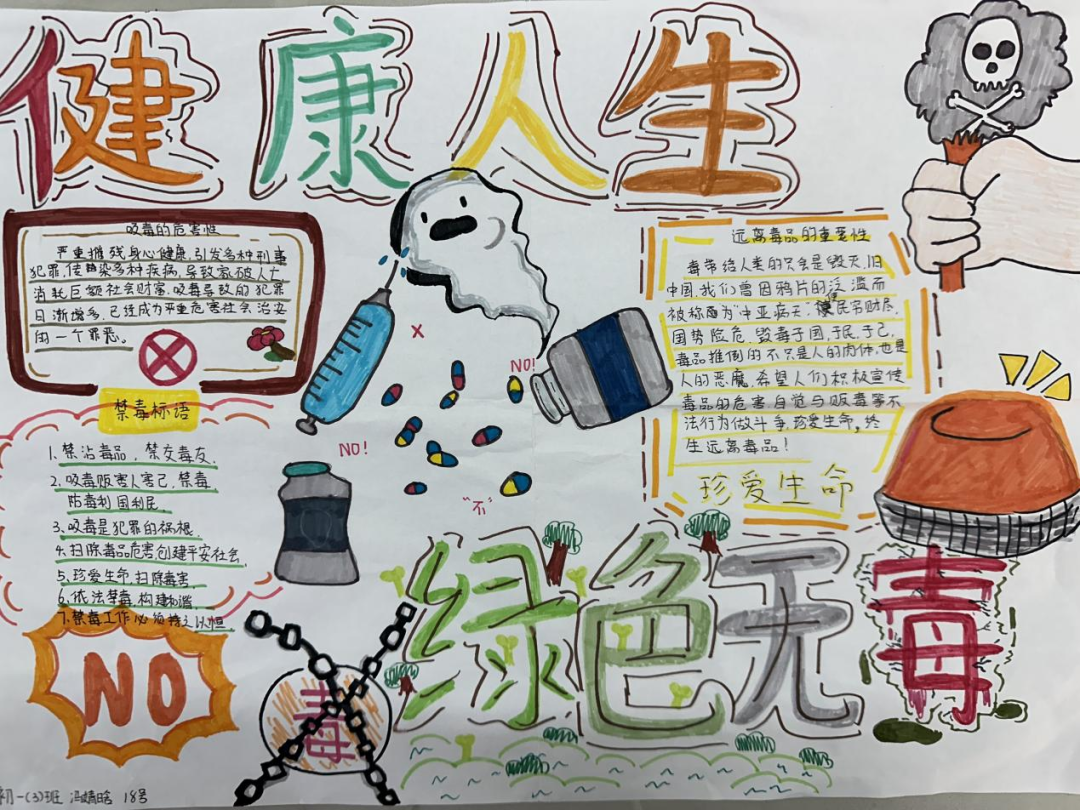 健康人生
吸毒的危害性
严重摧残身心健康,引发多种刑事
犯罪,传染多种疾病,导致家破人亡
消耗巨额社会财富.吸毒导致的犯罪
日渐增多,已经成为严重危害社会治安
的一个罪恶。
禁毒标语
1.禁沾毒品,禁交毒友.
2.吸毒贩害人害己,禁毒
防毒利国利民.
3.吸毒是犯罪的祸根.
4.扫除毒品危害创建平安社会.
5.珍爱生命.扫除毒害
6.依法禁毒.构建和谐
7.禁毒工作必须持之以恒
NO
X
NO!
NO!
"不"
远离毒品的重要性
毒带给人类的只会是毁灭.旧
中国,我们曾因鸦片的泛滥而
被称为"中亚病夫",使民穷财尽.
国势险危,毁毒于国,于民,于己,
毒品推倒的不只是人的肉体,也是
人的恶魔,希望人们积极宣传
毒品的危害.自觉与贩毒等不
法行为做斗争,珍爱生命,终
生远离毒品!
珍爱生命
绿色无毒
毒
初一(3)班 18号